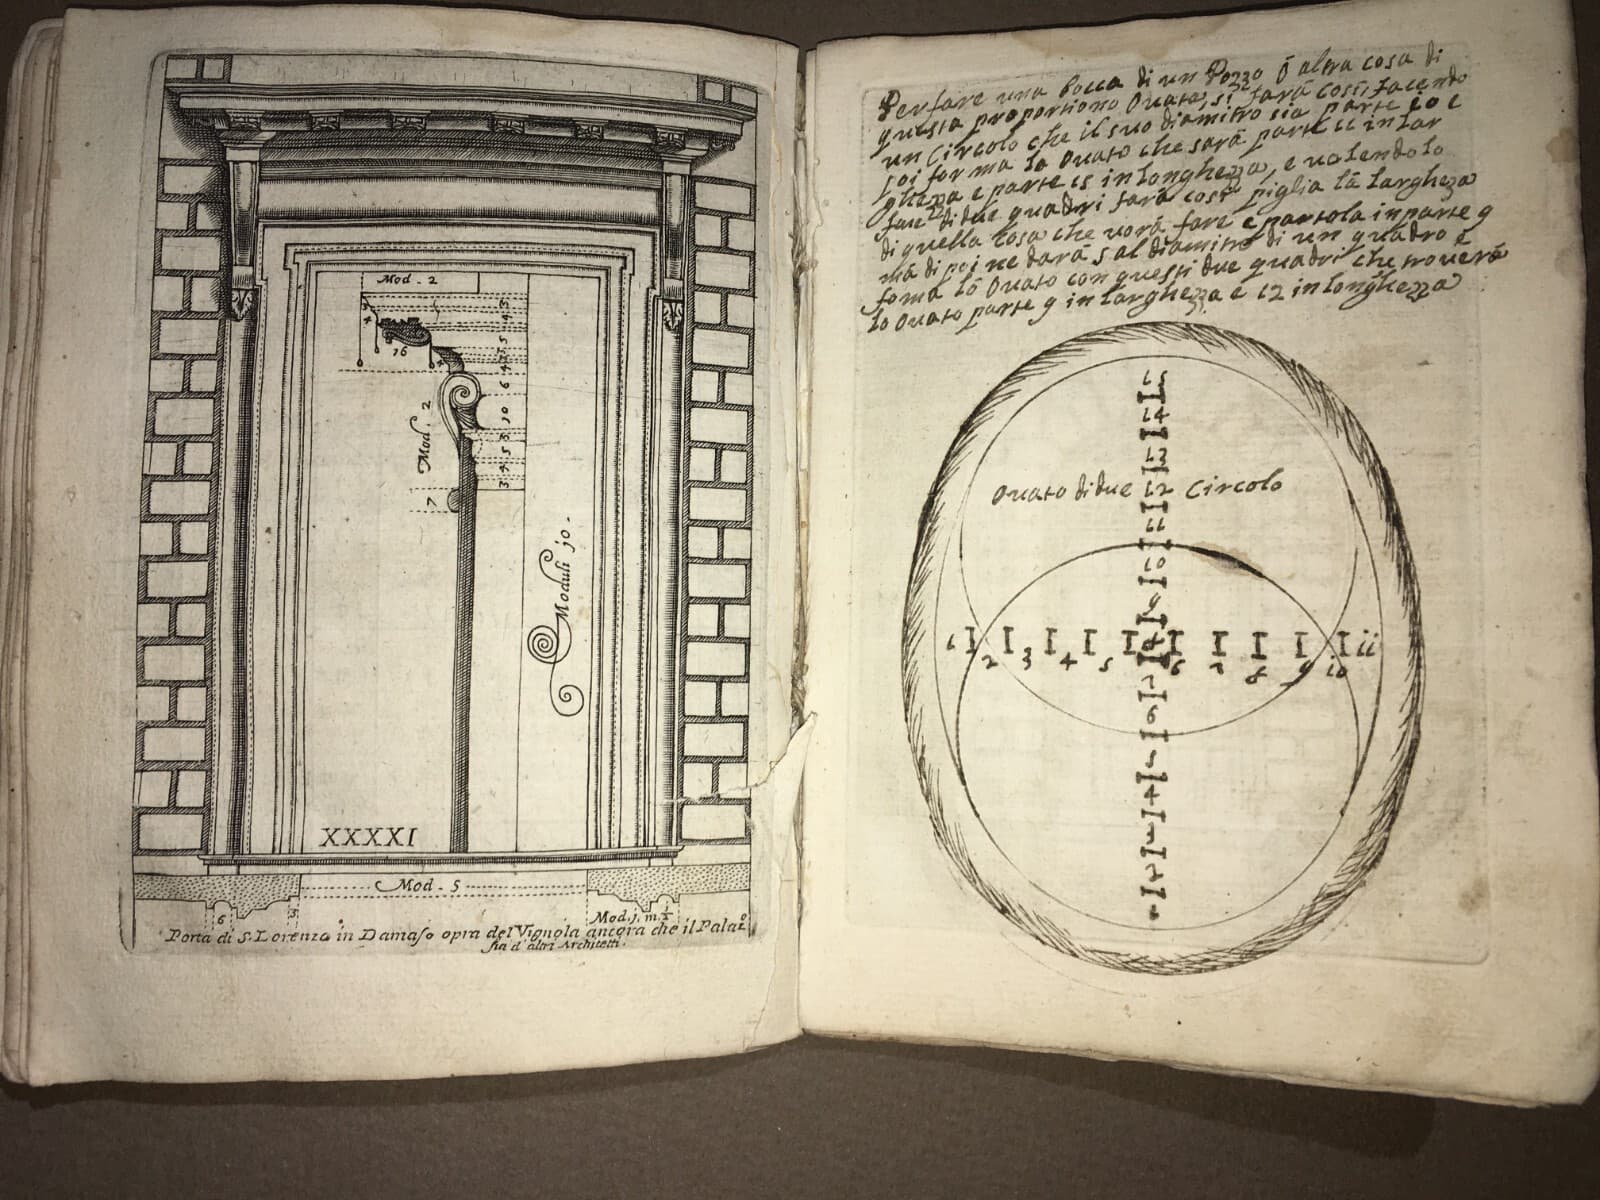 Mod. 2
3
4
5
16
6
10
Mod. 2
3
7
Moduli jo.
XXXXI
Mod. 5
6
3
Mod. j. m. ½
Porta di S. Lorenzo in Damaso opra del Vignola ancora che il Palaz.o
sia d'altri Architetti.
Per fare una bocca di un Pozzo ò altra cosa di
questa proportiono Ouato, si farà così, facendo
un Circolo che il suo diamitro sia parte 10 e
poi forma lo Ouato che sarà parte 11 in lar
ghezza e parte 15 in longhezza, e uolendolo
fare di due quadri farà così piglia la larghezza
di quella cosa che uorà fare e partola in parte 9
ma di poi ne darà 5 al diamitro di un quadro e
forma lo Ouato con questi due quadri che trouerà
lo Ouato parte 9 in larghezza e 12 in longhezza
15
14
13
12
Ouato di due Circolo
11
10
9
1 2 3 4 5 6 7 8 9 10 11
7
6
5
4
3
2
1